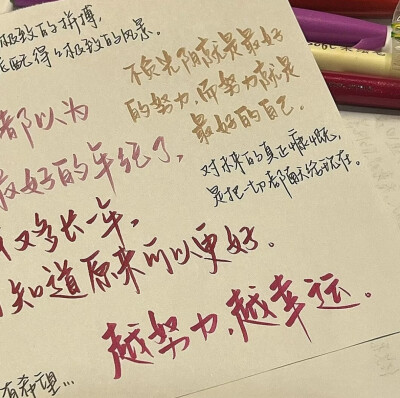 极致的拼搏,
配得上极致的风景。
不负光阴就是最好
的努力,而努力就是
最好的自己。
都以为
最好的年纪了,
对未来的真正慷慨,
是把一切都献给现在。
又多长一年,
知道原来可以更好。
越努力,越幸运。
有希望...